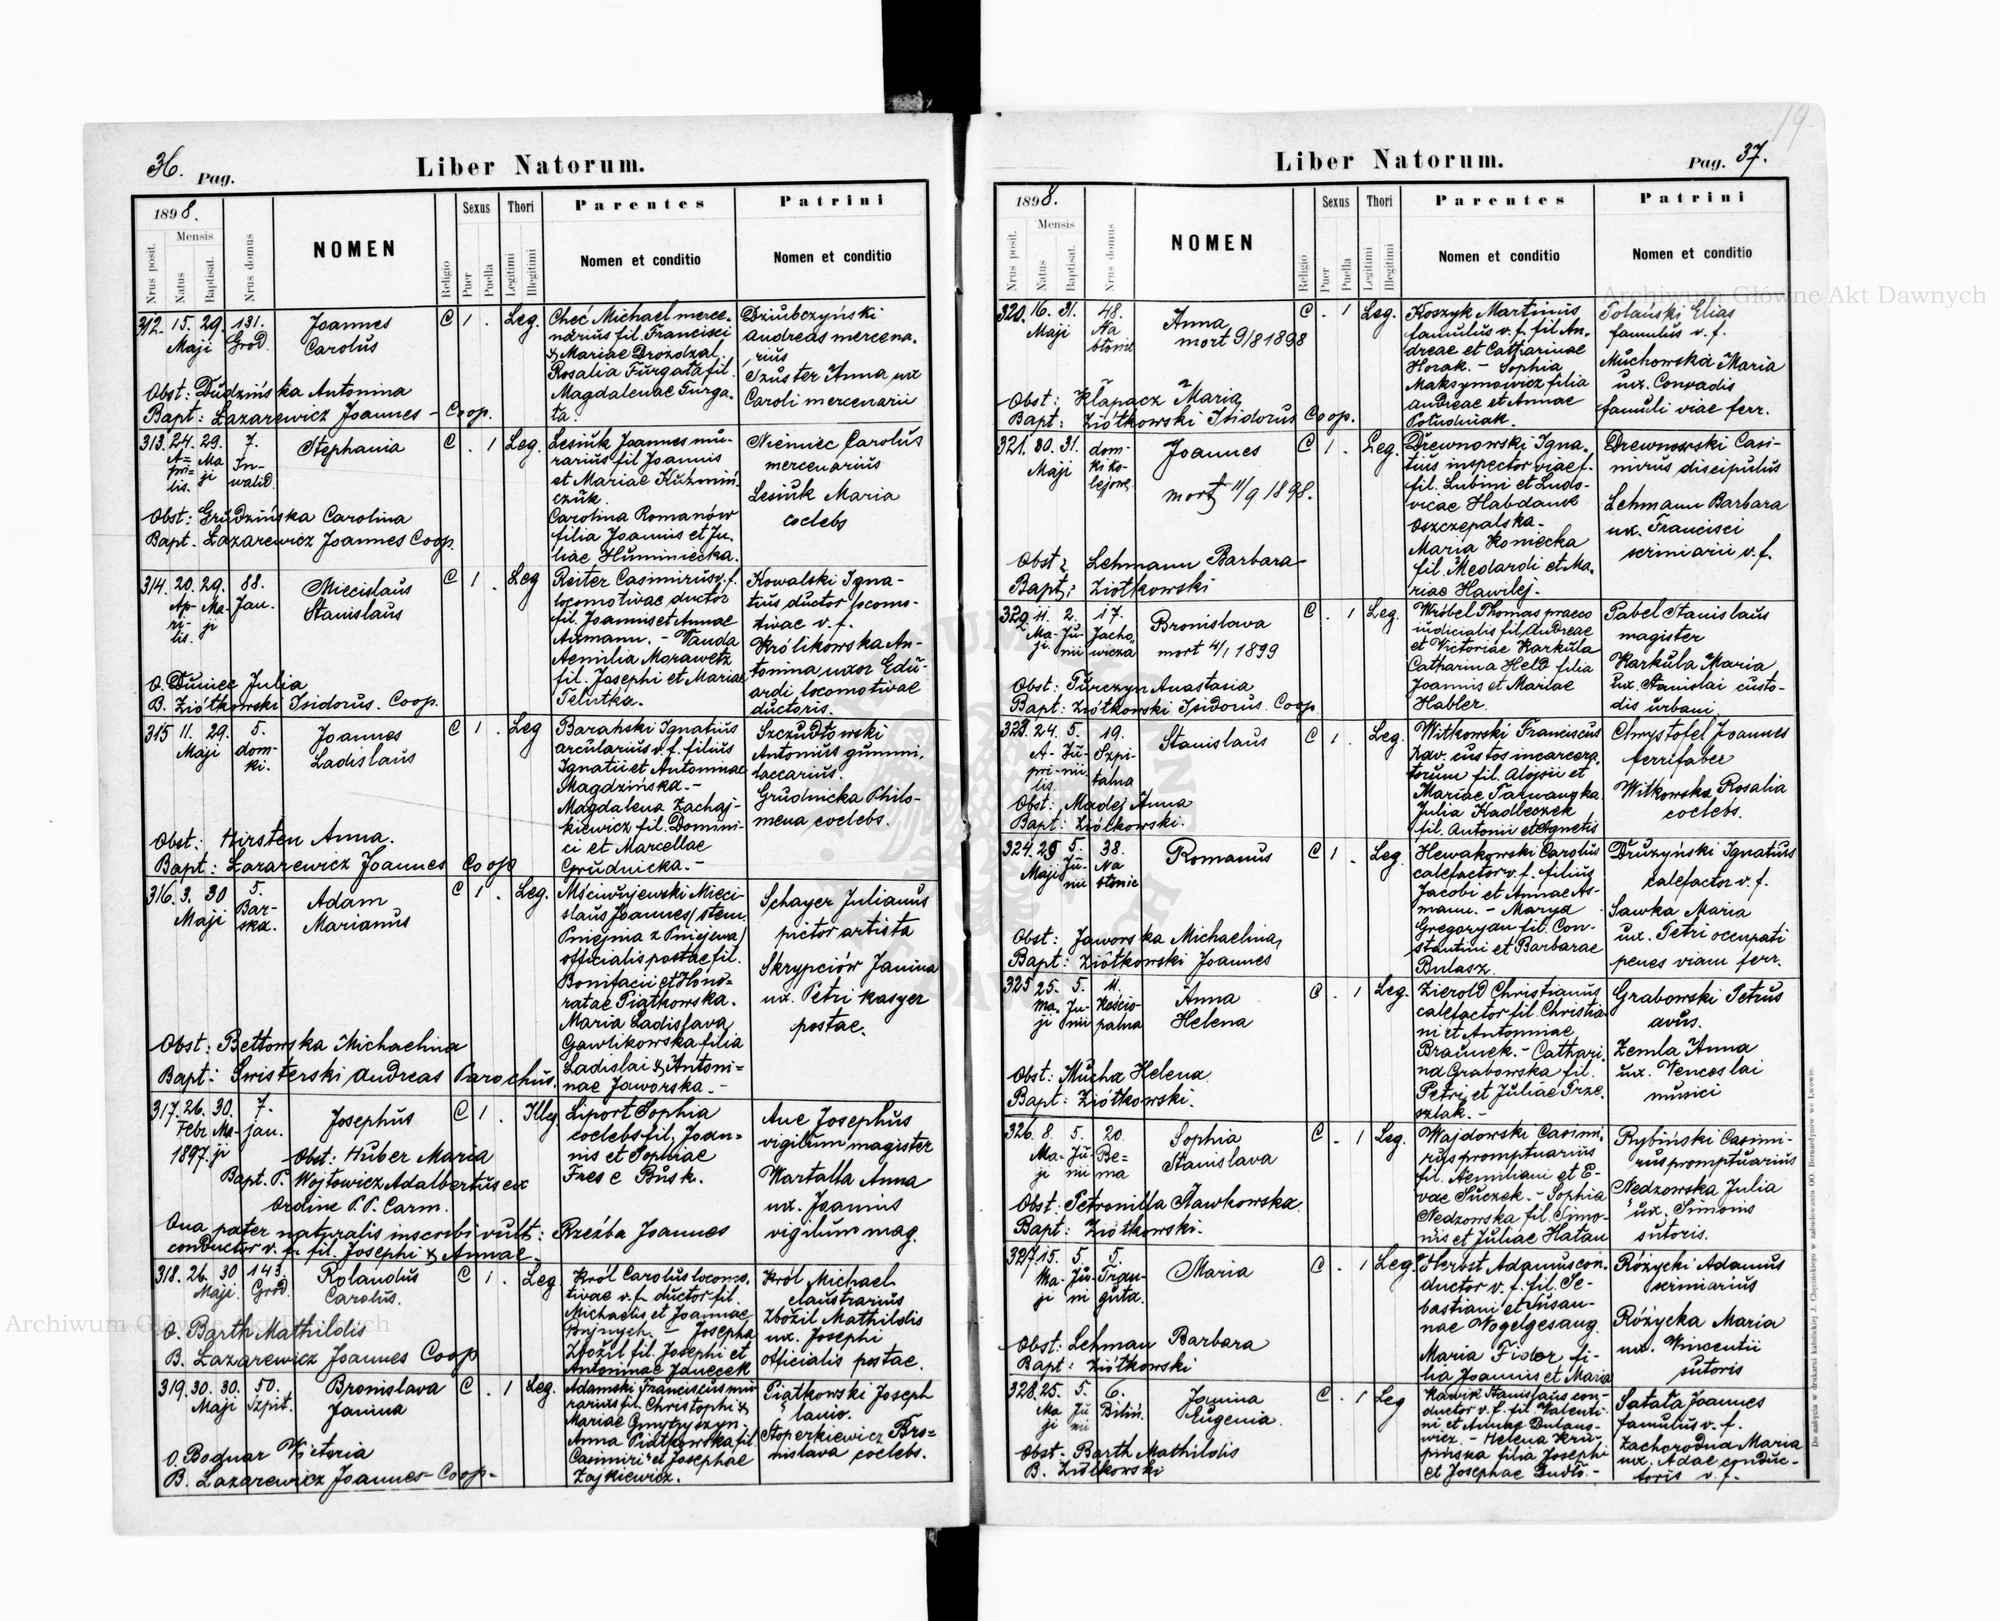 36. Pag.
Liber Natorum.
1898.
Mensis
Nrus posit.
Natus
Baptisat.
Nrus domus
NOMEN
Religio
Sexus
Puer
Puella
Thori
Legitimi
Illegitimi
Parentes
Nomen et conditio
Patrini
Nomen et conditio
312. 15. 29. 131.
Maji Grod.
Joannes
Carolus
C 1 . Leg.
Obst: Dudzińska Antonina
Bapt: Lazarewicz Joannes - Coop.
Cheć Michael merce-
narius fil. Francisci
& Mariae Drozdzal.
Rosalia Furgata fil.
Magdalenae Furga-
ta.
Dziubczyński
Andreas mercena-
rius
Szuster Anna ux
Caroli mercenarii
313. 24. 29. 7.
A= Ma In-
pri= ji walid.
lis.
Stephania
C . 1 Leg.
Obst: Grudzińska Carolina
Bapt. Lazarewicz Joannes Coop.
Lesiuk Joannes mu-
rarius fil Joannis
et Mariae Kuźmiń-
czuk.
Carolina Romanów
filia Joannis et Ju-
liae Huminiecka.
Niemiec Carolus
mercenarius
Lesiuk Maria
coelebs
314. 20. 29. 88.
Ap- Ma- Jan.
ri- ji
lis.
Miecislaus
Stanislaus
C 1 . Leg
O. Duniec Julia
B. Ziółkowski Isidorus. Coop.
Reiter Casimirus v. f.
locomotivae ductor
fil. Joannis et Annae
Axmann. - Wanda
Aemilia Morawetz
fil. Josephi et Mariae
Telutka.
Kowalski Igna-
tius ductor locomo-
tivae v. f.
Królikowska An-
tonina uxor Edu-
ardi locomotivae
ductoris.
315 11. 29. 5.
Maji dom-
ki.
Joannes
Ladislaus
C 1 . Leg
Obst: Hirsten Anna.
Bapt: Lazarewicz Joannes Coop
Barański Ignatius
arcularius v. f. filius
Ignatii et Antoninae
Magdzińska.-
Magdalena Zachaj-
kiewicz fil. Domini-
ci et Marcellae
Grudnicka.-
Szczudłowski
Antonius gummi-
laccarius.
Grudnicka Philo-
mena coelebs.
316. 3. 30 5.
Maji Bar-
ska.
Adam
Marianus
C 1 . Leg.
Obst: Bettowska Michaelina
Bapt: Swisterski Andreas Parochus.
Mściwujewski Mieci-
slaus Joannes / stem.
Pniejnia z Pniejewa /
officialis postae fil.
Bonifacii et Hono=
ratae Piątkowska.
Maria Ladislava
Gawlikowska filia
Ladislai & Antoni=
nae Jaworska. -
Schayer Julianus
pictor artista
Skrypciów Janina
ux. Petri kasyer
postae.
317. 26. 30. 7.
Febr Ma- jan.
1897. ji
Josephus
C 1 . Illeg
Obst: Huber Maria
Bapt. P. Wojtowicz Adalbertus ex
Ordine P. P. Carm.
Qua pater naturalis inscribi vult: Rzeźba Joannes
conductor v. f. fil. Josephi & Annae.
Liport Sophia
coelebs fil. Joan=
nis et Sophiae
Frese Busk.
Aue Josephus
vigilum magister
Wartalla Anna
ux. Joannis
vigilum mag.
318. 26. 30 143.
Maji Grod.
Rolandus
Carolus.
C 1 . Leg.
O. Barth Mathildis
B. Lazarewicz Joannes Coop
Król Carolus locomo-
tivae v. f. ductor fil.
Michaelis et Joannae
Bujnych. - Josepha
Zbożil fil. Josephi et
Antoninae Janecek
Król Michael
claustrarius
Zbożil Mathildis
ux. Josephi
officialis postae.
319. 30. 30. 50.
Maji Szpit.
Bronislava
Janina
C . 1 Leg.
O. Bodnar Victoria
B. Lazarewicz Joannes - Coop-
Adamski Franciscus mu-
rarius fil. Christophi &
Mariae
Anna Piątkowska fil.
Casimiri et Josephae
Zajkiewicz.
Piątkowski Joseph
lanio.
Stoperkiewicz Bro=
nislava coelebs.
19
Liber Natorum.
Pag. 37.
1898.
Mensis
Nrus posit.
Natus
Baptisat.
Nrus domus
NOMEN
Religio
Sexus
Puer
Puella
Thori
Legitimi
Illegitimi
Parentes
Nomen et conditio
Patrini
Nomen et conditio
320. 16. 31. 48.
Maji Na
błonie
Anna
mort 9/8 1898
C . 1 Leg.
Obst: Kłapacz Maria
Bapt: Ziółkowski Isidorus Coop.
Koszyk Martinus
famulus v. f. fil An-
dreae et Catharinae
Horak. - Sophia
Maksymowicz filia
Andreae et Annae
Południak.
Polański Elias
famulus v. f.
Muchowska Maria
ux. Conradis
famuli viae ferr.
321. 30. 31. dom-
Maji ki ko-
lejowe.
Joannes
mort 11/9 1898.
C 1 . Leg.
Obst: Lehmann Barbara
Bapt: Ziółkowski
Drewnowski Igna-
tius inspector viae f.
fil. Lubini et Ludo-
vicae Habdank
Oszczepalska.
Maria Koniecka
fil. Medardi et Ma-
riae Hawilej.
Drewnowski Casi-
mirus discipulus
Lehmann Barbara
ux. Francisci
scriniarii v. f.
322. 11. 2. 17.
Ma- Ju- Jacho
ji. nii wicza
Bronislava
mort 4/1 1899
C . 1 Leg.
Obst: Turczyn Anastasia
Bapt: Ziółkowski Isidorus. Coop
Wróbel Thomas praeco
iudicialis fil. Andreae
et Victoriae Karkula
Catharina Held filia
Joannis et Mariae
Habler.
Pabel Stanislaus
magister
Karkula Maria
ux. Stanislai custo-
dis urbani
323. 24. 5. 19.
A- Ju- Szpi-
pri- nii talna
lis
Stanislaus
C 1 . Leg.
Obst: Madej Anna
Bapt: Ziółkowski.
Witkowski Franciscus
Xav. custos incarcera-
torum fil. Aloisii et
Mariae Tarnawska
Julia Kadleczek
fil. Antonii et Agnetis
Chrystofel Joannes
ferrifaber
Witkowska Rosalia
coelebs.
324. 29 5. 38.
Maji Ju- Na
nii błonie
Romanus
C 1 . Leg
Obst: Jaworska Michaelina
Bapt: Ziółkowski Joannes
Hewakowski Carolus
calefactor v. f. filius
Jacobi et Annae As-
mann. - Marya
Gregoryan fil. Con-
stantini et Barbarae
Bulasz.
Drużyński Ignatius
calefactor v. f.
Sawka Maria
ux. Petri occupati
penes viam ferr.
325 25. 5. 11.
Ma- Ju- Kościo-
ji nii palna
Anna
Helena
C . 1 Leg.
Obst: Mucha Helena
Bapt: Ziółkowski.
Zierold Christianus
calefactor fil. Christia-
ni et Antoniae
Braunek. - Cathari-
na Grabowska fil.
Petri et Juliae Prze-
szlak. -
Grabowski Petrus
avus.
Zemla Anna
ux. Venceslai
musici
326. 8. 5. 20.
Ma- Ju- Be=
ji nii ma
Sophia
Stanislava
C . 1 Leg.
Obst: Petronilla Stawkowska
Bapt: Ziółkowski.
Wajdowski Casimi-
rus promptuarius
fil. Aemiliani et E-
vae Suczek. - Sophia
Nedzowska fil. Simo-
nis et Juliae Hatau
Rybiński Casimi-
rus promptuarius
Nedzowska Julia
ux. Simonis
sutoris.
327 15. 5. 5.
Ma- Ju- Trau-
ji ni gutta.
Maria
C . 1 Leg.
Obst: Lehman Barbara
Bapt: Ziółkowski
Herbst Adamus con-
ductor v. f. fil. Se-
bastiani et Susan-
nae Vogelgesang.
Maria Fidor fi-
lia Joannis et Maria
Różycki Adamus
scriniarius
Różycka Maria
ux. Vincentii
sutoris
328. 25. 5. 6.
Ma Ju Biliń.
ji nii
Janina
Eugenia.
C . 1 Leg
Obst. Barth Mathildis
B. Ziółkowski
Kawik Stanislaus con-
ductor v. f. fil. Valenti-
ni et Annae Dulano-
wicz. - Helena Kru-
pińska filia Josephi
et Josephae Dudło. -
Satała Joannes
famulus v. f.
Zachorodna Maria
ux. Adae conduc-
toris v. f.
Do nabycia w drukarni katolickiej J. Chęcińskiego w zabudowaniu OO. Bernardynów we Lwowie.
Archiwum Główne Akt Dawnych
Archiwum Główne Akt Dawnych